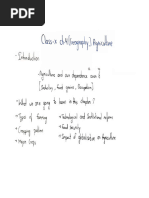 Class-X ch.4 (Geography) Agriculture
Introduction
Agriculture and our dependence over it
[Industry, Food grains, Occupation]
What we are going to learn in this chapter?
Types of farming
Technological and Institutional reforms
Cropping pattern
Food Security
Major Crops
Impact of globalisation on Agriculture